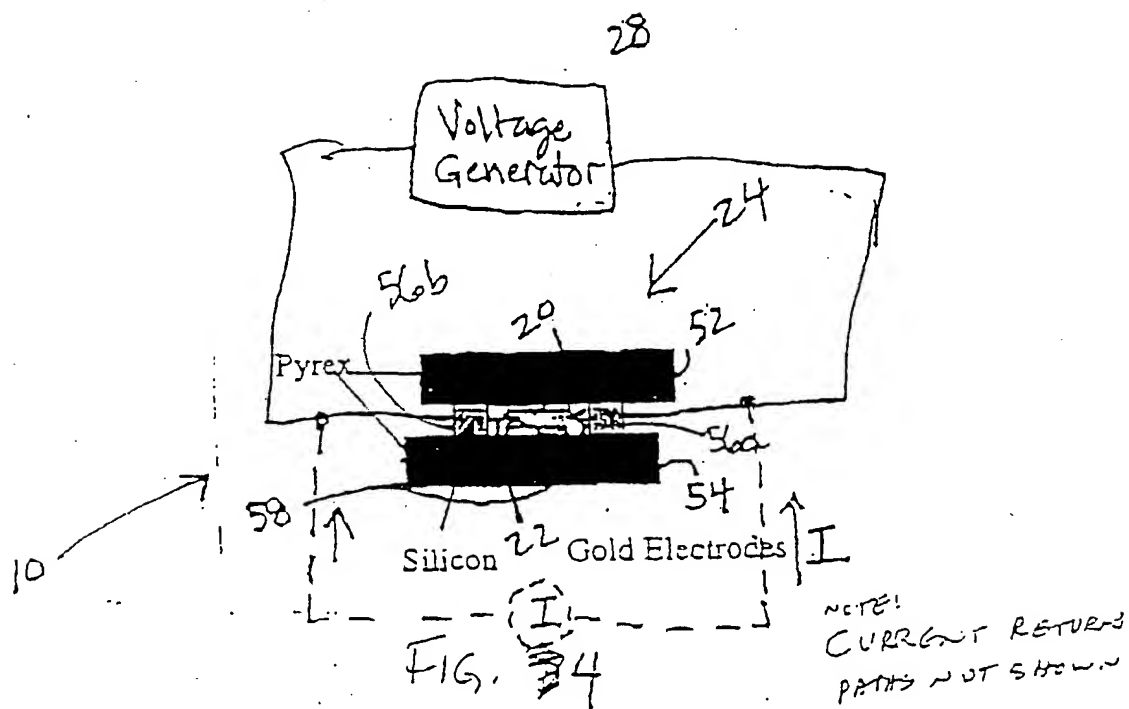 28
Voltage
Generator
24
56b
20
52
Pyrex
56a
54
58
10
Silicon 22 Gold Electrodes I
I
FIG. 4
NOTE!
CURRENT RETURNS
PATHS NOT SHOWN